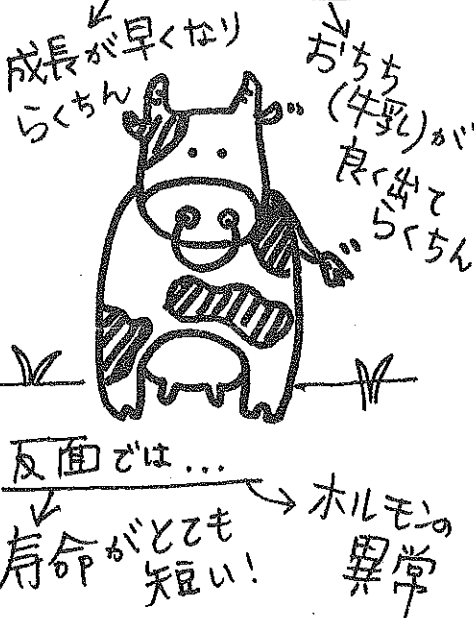 成長が早くなり
らくちん
おちち
(牛乳)が
良く出て
らくちん
反面では...
寿命がとても
短い!
ホルモンの
異常